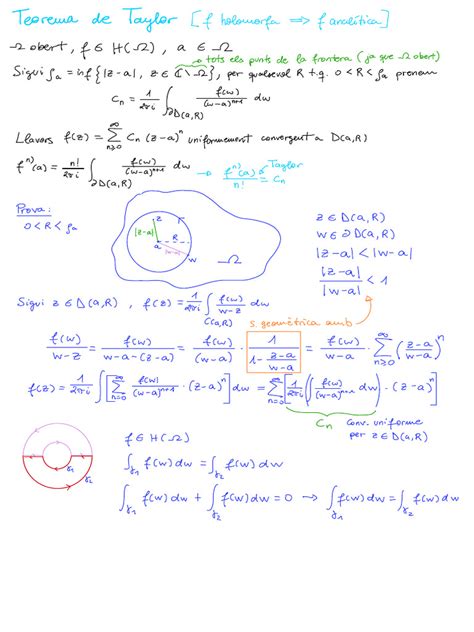 Teorema de Taylor [f holomorfa ⟹ f analítica]
Ω obert, f ∈ H(Ω), a ∈ Ω
→ tots els punts de la frontera (ja que Ω obert)
Sigui ρₐ = inf{|z-a|, z ∈ ℂ\Ω}, per qualsevol R t.q. 0<R<ρₐ prenem
Cₙ = 1/2πi ∫_{∂D(a,R)} f(w)/(w-a)ⁿ⁺¹ dw
Llavors f(z) = ∑_{n≥0}^∞ Cₙ (z-a)ⁿ uniformement convergent a D(a,R)
fⁿ⁾(a) = n!/2πi ∫_{∂D(a,R)} f(w)/(w-a)ⁿ⁺¹ dw → fⁿ⁾(a)/n! = Cₙ Taylor
Prova:
0<R<ρₐ
z
r
|z-a|
R
a
|w-a|
w
Ω
z ∈ D(a,R)
w ∈ ∂D(a,R)
|z-a| < |w-a|
|z-a|/|w-a| < 1
Sigui z ∈ D(a,R), f(z) = 1/2πi ∫_{C(a,R)} f(w)/(w-z) dw
s. geomètrica amb
f(w)/(w-z) = f(w)/(w-a-(z-a)) = f(w)/(w-a) · 1/(1-(z-a)/(w-a)) = f(w)/(w-a) · ∑_{n≥0}^∞ ((z-a)/(w-a))ⁿ
f(z) = 1/2πi ∫[∑_{n=0}^∞ f(w)/(w-a)ⁿ⁺¹ · (z-a)ⁿ]dw = ∑_{n=0}^∞ [1/2πi (∫ f(w)/(w-a)ⁿ⁺¹ dw) · (z-a)ⁿ]
Cₙ
conv. uniforme
per z ∈ D(a,R)
γ₁
γ₂
f ∈ H(Ω)
∫_{γ₁} f(w)dw = ∫_{γ₂} f(w)dw
∫_{γ₁} f(w)dw + ∫_{γ₂} f(w)dw = 0 → ∫_{γ₁} f(w)dw = ∫_{γ₂} f(w)dw